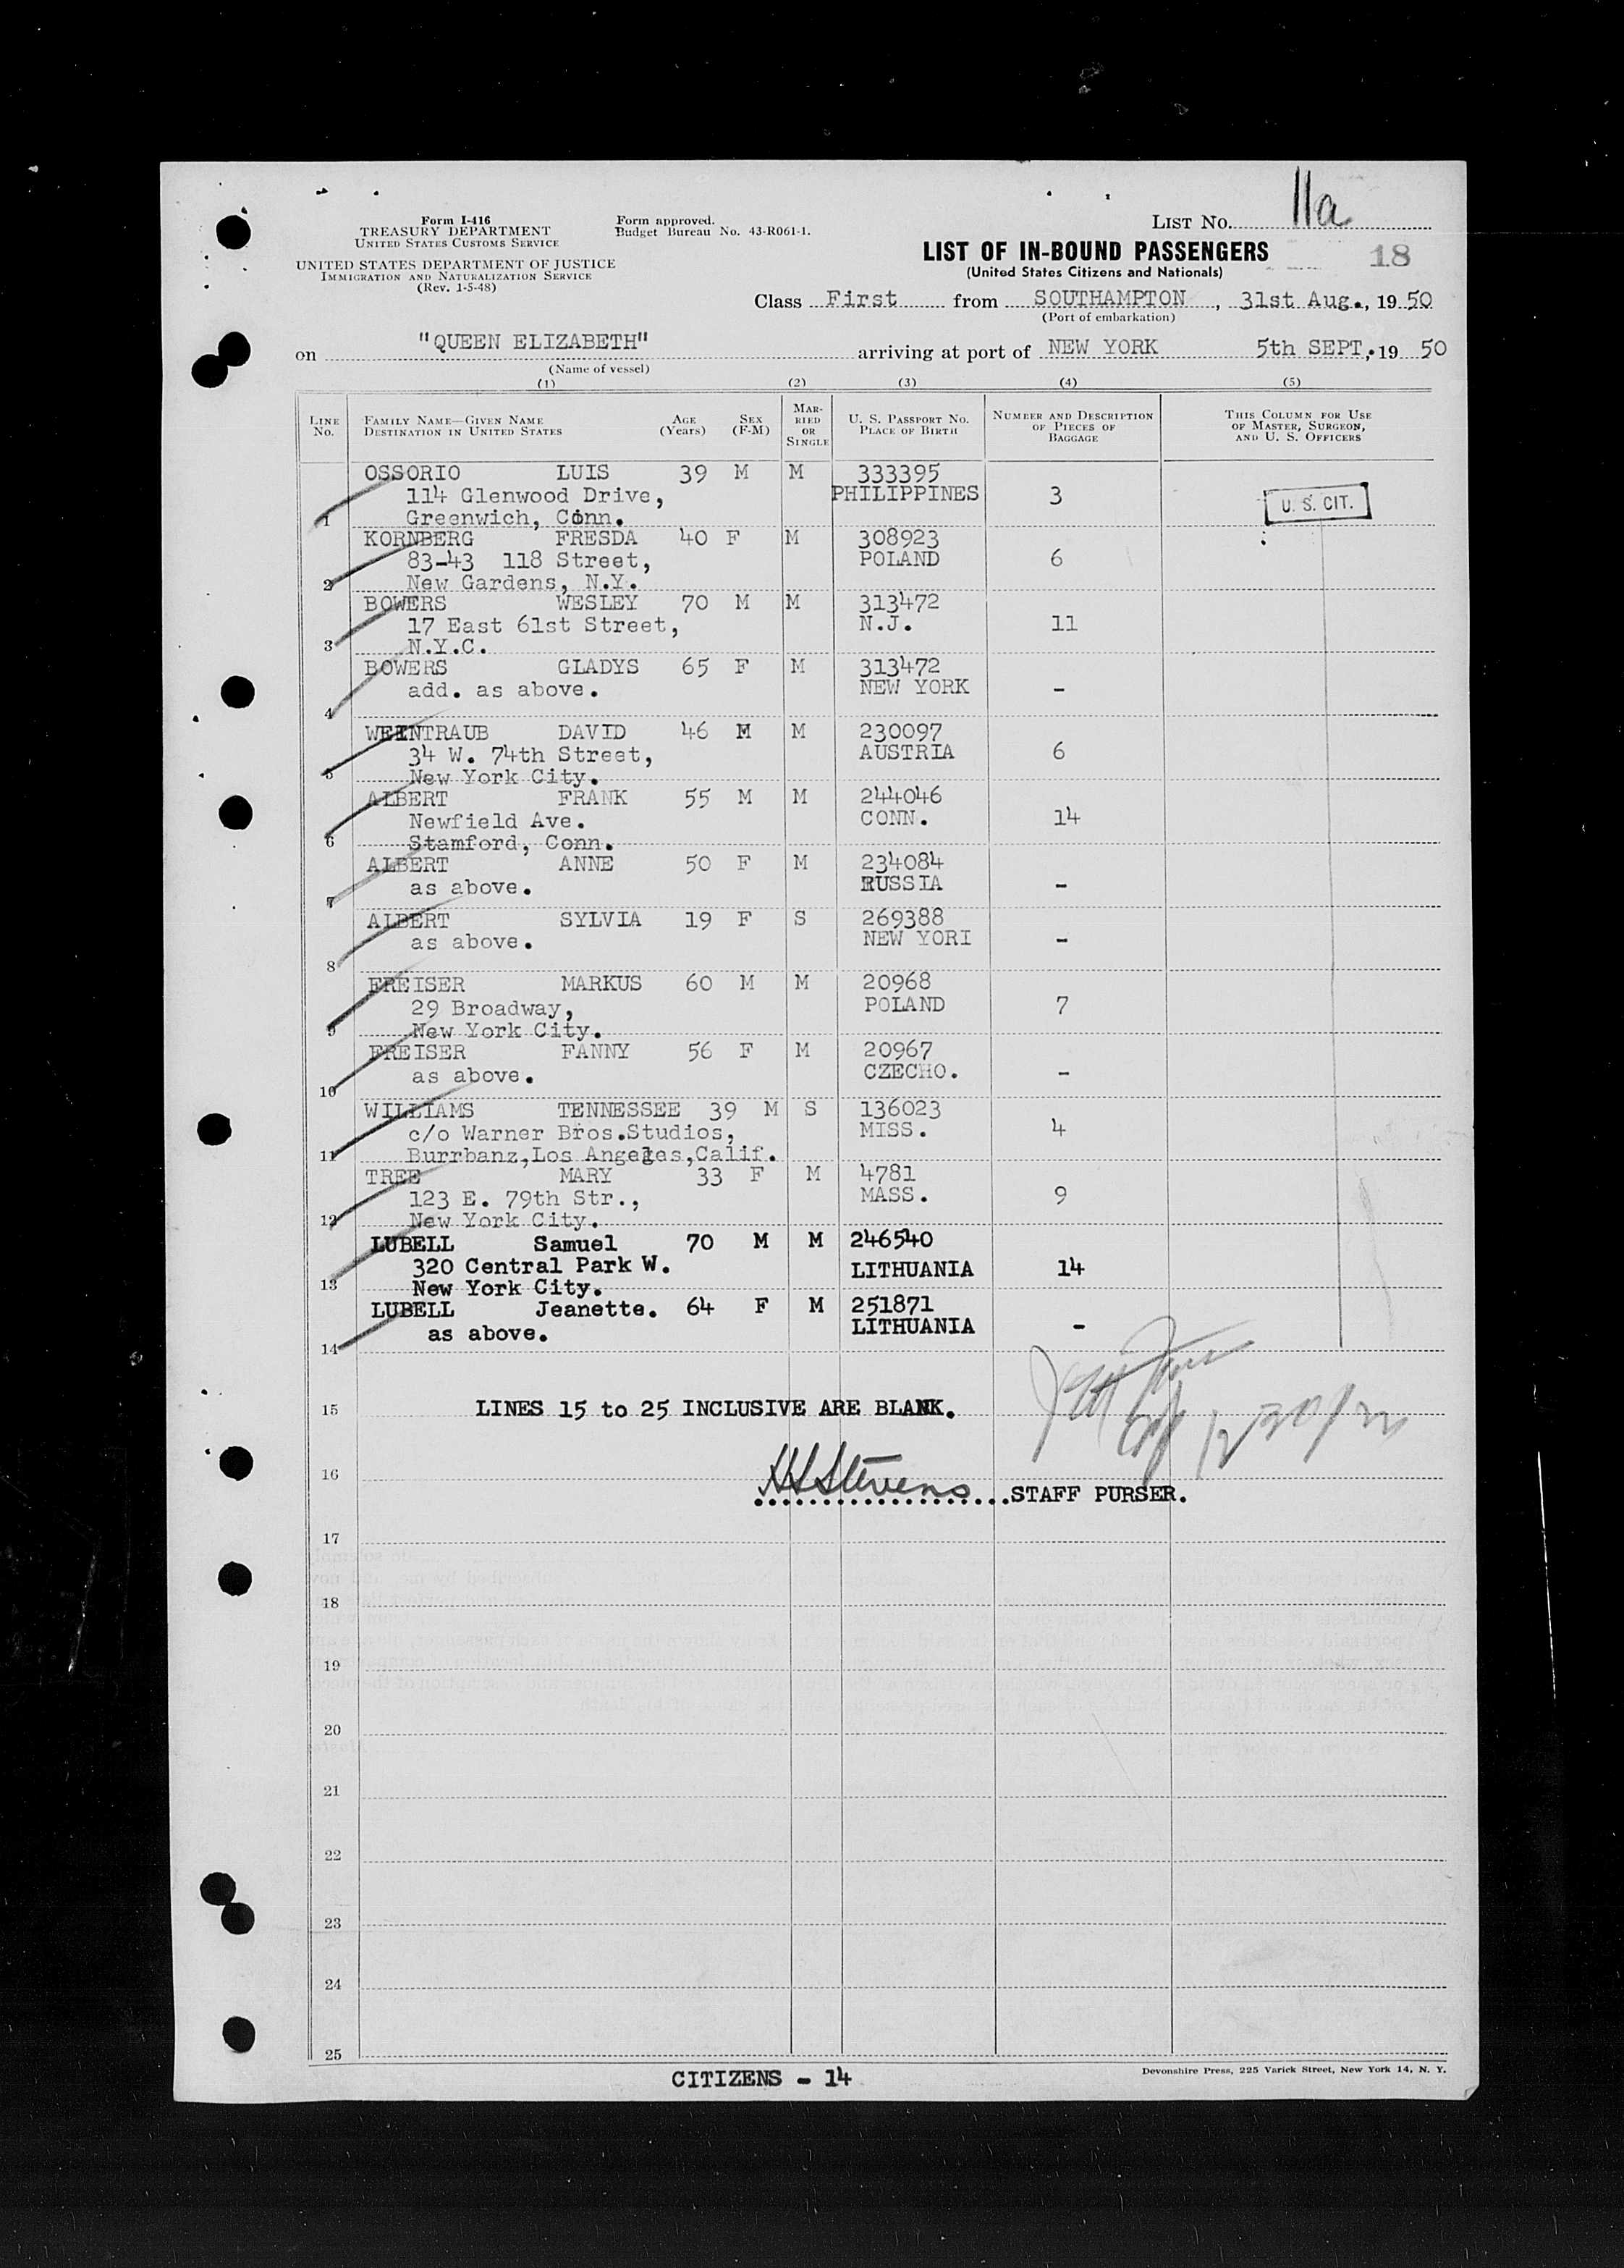 11a
Form I-416
TREASURY DEPARTMENT
UNITED STATES CUSTOMS SERVICE
UNITED STATES DEPARTMENT OF JUSTICE
IMMIGRATION AND NATURALIZATION SERVICE
(Rev. 1-5-48)
Form approved.
Budget Bureau No. 43-R061-1.
LIST No.
LIST OF IN-BOUND PASSENGERS
(United States Citizens and Nationals)
18
Class First from SOUTHAMPTON, 31st Aug., 1950
(Port of embarkation)
on "QUEEN ELIZABETH" arriving at port of NEW YORK 5th SEPT, 19 50
(Name of vessel)
(1) (2) (3) (4) (5)
LINE No. FAMILY NAME—GIVEN NAME DESTINATION IN UNITED STATES AGE (Years) SEX (F-M) MARRIED OR SINGLE U. S. PASSPORT No. PLACE OF BIRTH NUMBER AND DESCRIPTION OF PIECES OF BAGGAGE THIS COLUMN FOR USE OF MASTER, SURGEON, AND U. S. OFFICERS
OSSORIO LUIS 39 M M 333395
114 Glenwood Drive, PHILIPPINES 3 U. S. CIT.
1 Greenwich, Conn.
KORNBERG FRESDA 40 F M 308923
83-43 118 Street, POLAND 6
2 New Gardens, N.Y.
BOWERS WESLEY 70 M M 313472
17 East 61st Street, N.J. 11
3 N.Y.C.
BOWERS GLADYS 65 F M 313472
add. as above. NEW YORK -
4
WEINTRAUB DAVID 46 M M 230097
34 W. 74th Street, AUSTRIA 6
5 New York City.
ALBERT FRANK 55 M M 244046
Newfield Ave. CONN. 14
6 Stamford, Conn.
ALBERT ANNE 50 F M 234084
as above. RUSSIA -
7
ALBERT SYLVIA 19 F S 269388
as above. NEW YORI -
8
FREISER MARKUS 60 M M 20968
29 Broadway, POLAND 7
9 New York City.
FREISER FANNY 56 F M 20967
as above. CZECHO. -
10
WILLIAMS TENNESSEE 39 M S 136023
c/o Warner Bros.Studios, MISS. 4
11 Burrbanz,Los Angeles,Calif.
TREE MARY 33 F M 4781
123 E. 79th Str., MASS. 9
12 New York City.
LUBELL Samuel 70 M M 246540
320 Central Park W. LITHUANIA 14
13 New York City.
LUBELL Jeanette. 64 F M 251871
as above. LITHUANIA -
14
15 LINES 15 to 25 INCLUSIVE ARE BLANK.
16 HLStevens STAFF PURSER.
17
18
19
20
21
22
23
24
25
CITIZENS - 14
Devonshire Press, 225 Varick Street, New York 14, N. Y.